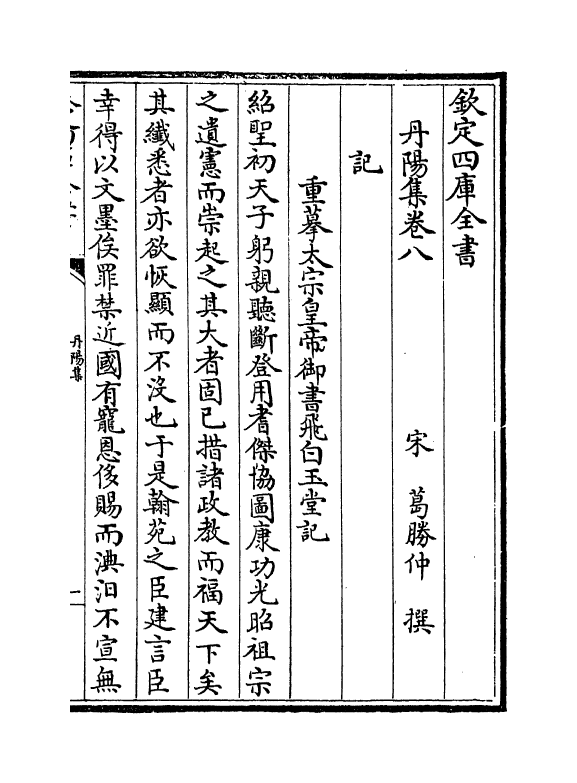 欽定四庫全書
丹陽集卷八
宋　葛勝仲　撰
記
重摹太宗皇帝御書飛白玉堂記
紹聖初天子躬親聽斷登用耆傑協圖康功光昭祖宗
之遺憲而崇起之其大者固已措諸政教而福天下矣
其纖悉者亦欲恢顯而不沒也于是翰苑之臣建言臣
幸得以文墨俟罪禁近國有寵恩侈賜而淟汩不宣無
丹陽集
一